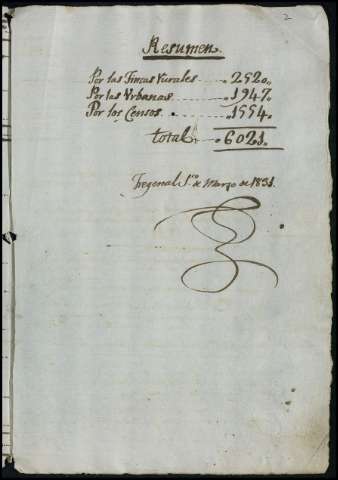 2
Resumen.
Por las Fincas rurales 2520.
Por las Urbanas 1947.
Por los Censos 1554.
total 6021.
Fregenal 1.º de Marzo de 1831.